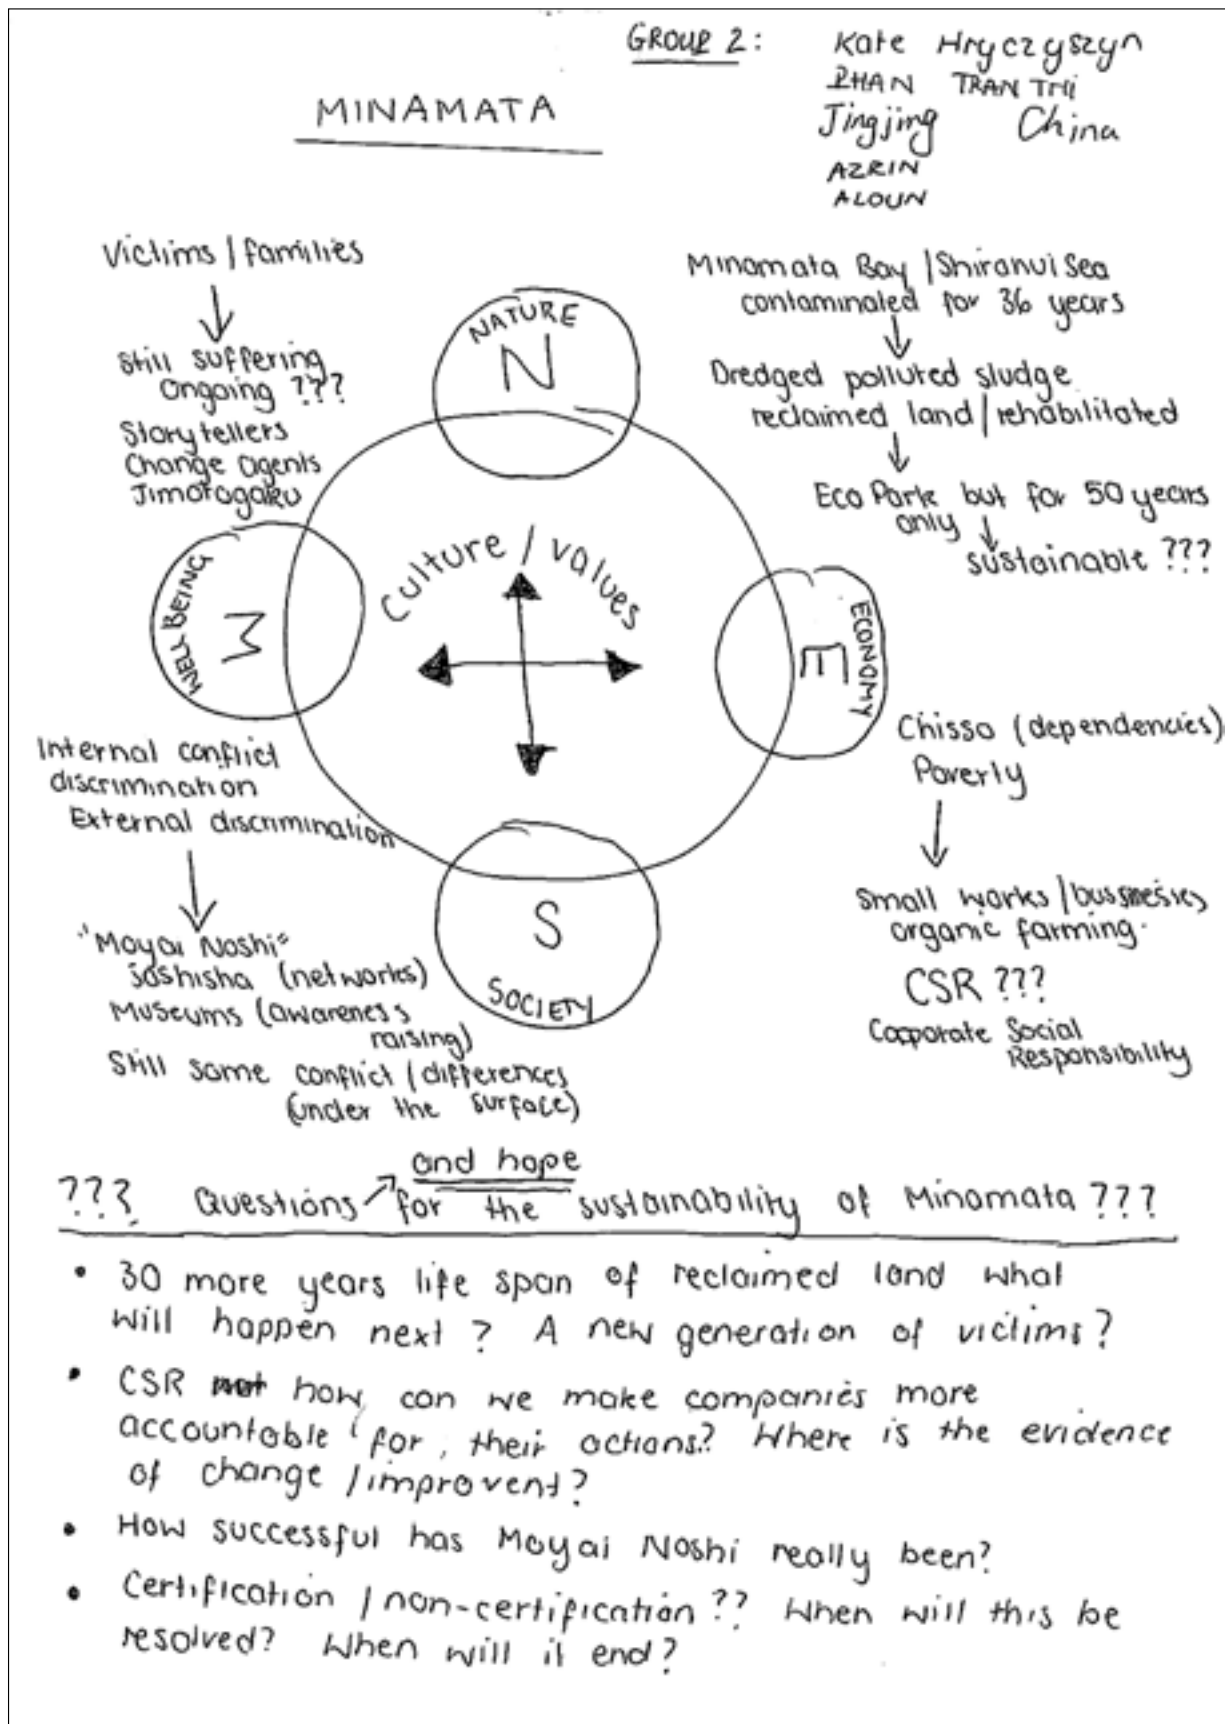 GROUP 2:
Kate Hryczyszyn
PHAN TRAN THI
Jingjing China
AZRIN
ALOUN
MINAMATA
Victims / families
Still suffering
Ongoing ???
Storytellers
Change agents
Jimotogaku
Minamata Bay / Shiranui Sea
contaminated for 36 years
Dredged polluted sludge
reclaimed land / rehabilitated
Eco Park but for 50 years
only
sustainable ???
NATURE
N
WELL BEING
W
Culture / values
ECONOMY
E
S
SOCIETY
Internal conflict
discrimination
External discrimination
"Moyai Noshi"
Sashisha (networks)
Museums (awareness
raising)
Still some conflict / differences
(under the surface)
Chisso (dependencies)
Poverty
Small works / bussnesses
organic farming.
CSR ???
Copporate Social
Responsibility
and hope
??? Questions for the sustainability of Minamata ???
• 30 more years life span of reclaimed land what
will happen next? A new generation of victims?
• CSR how can we make companies more
accountable for their actions? Where is the evidence
of change / improvent?
• How successful has Moyai Noshi really been?
• Certification / non-certification ?? When will this be
resolved? When will it end?